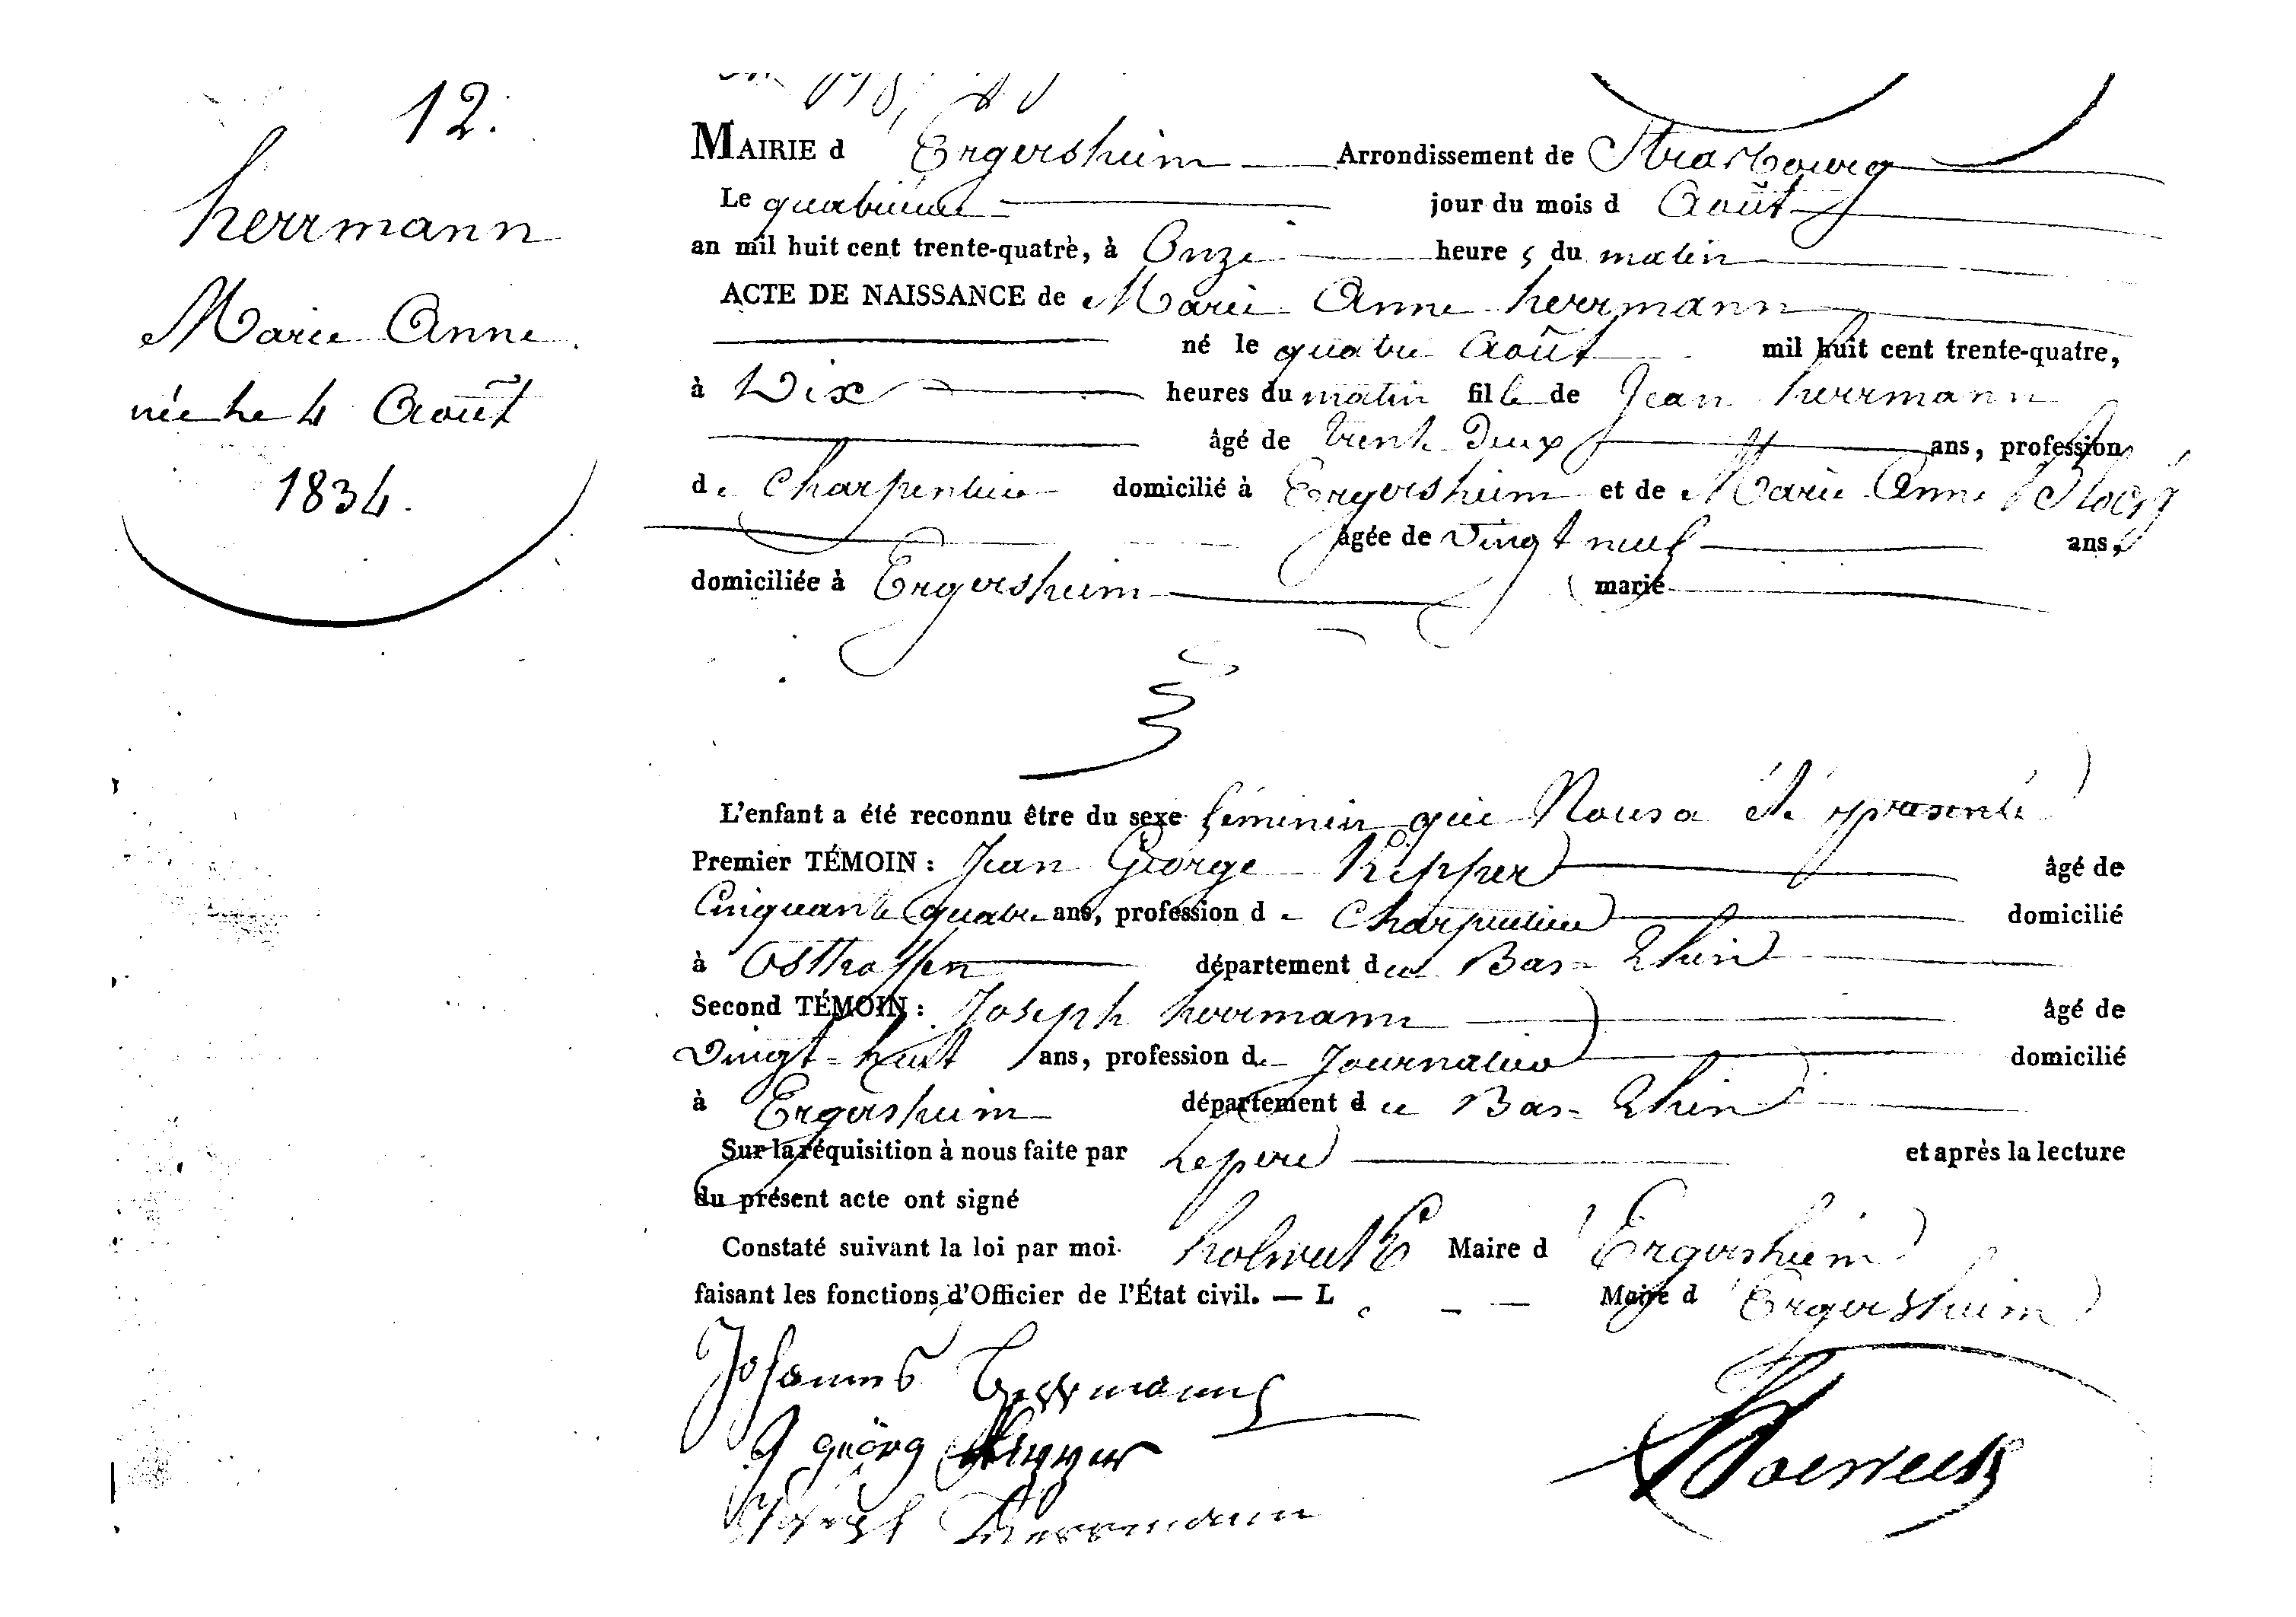 12.
herrmann
Marie Anne
née le 4 Août
1834.
MAIRIE d'Ergersheim Arrondissement de Strasbourg
Le quatrième jour du mois d Août
an mil huit cent trente-quatre, à Onze heures du matin
ACTE DE NAISSANCE de Marie Anne herrmann
né le quatre Août mil huit cent trente-quatre,
à Dix heures du matin fille de Jean herrmann
âgé de trente Deux ans, profession
de Charpentier domicilié à Ergersheim et de Marie Anne
âgée de vingt neuf ans,
domiciliée à Ergersheim marié
L'enfant a été reconnu être du sexe féminin qui Nous a été présenté
Premier TÉMOIN : Jean George Kepper âgé de
Cinquante quatre ans, profession de Charpentier domicilié
à Osthoffen département du Bas-Rhin
Second TÉMOIN : Joseph herrmann âgé de
Vingt-huit ans, profession de Journalier domicilié
à Ergersheim département du Bas-Rhin
Sur la réquisition à nous faite par Le père et après la lecture
du présent acte ont signé
Constaté suivant la loi par moi Maire d'Ergersheim
faisant les fonctions d'Officier de l'État civil. — Le Maire d'Ergersheim
Johannes Herrmann
J georg
Joseph Herrmann